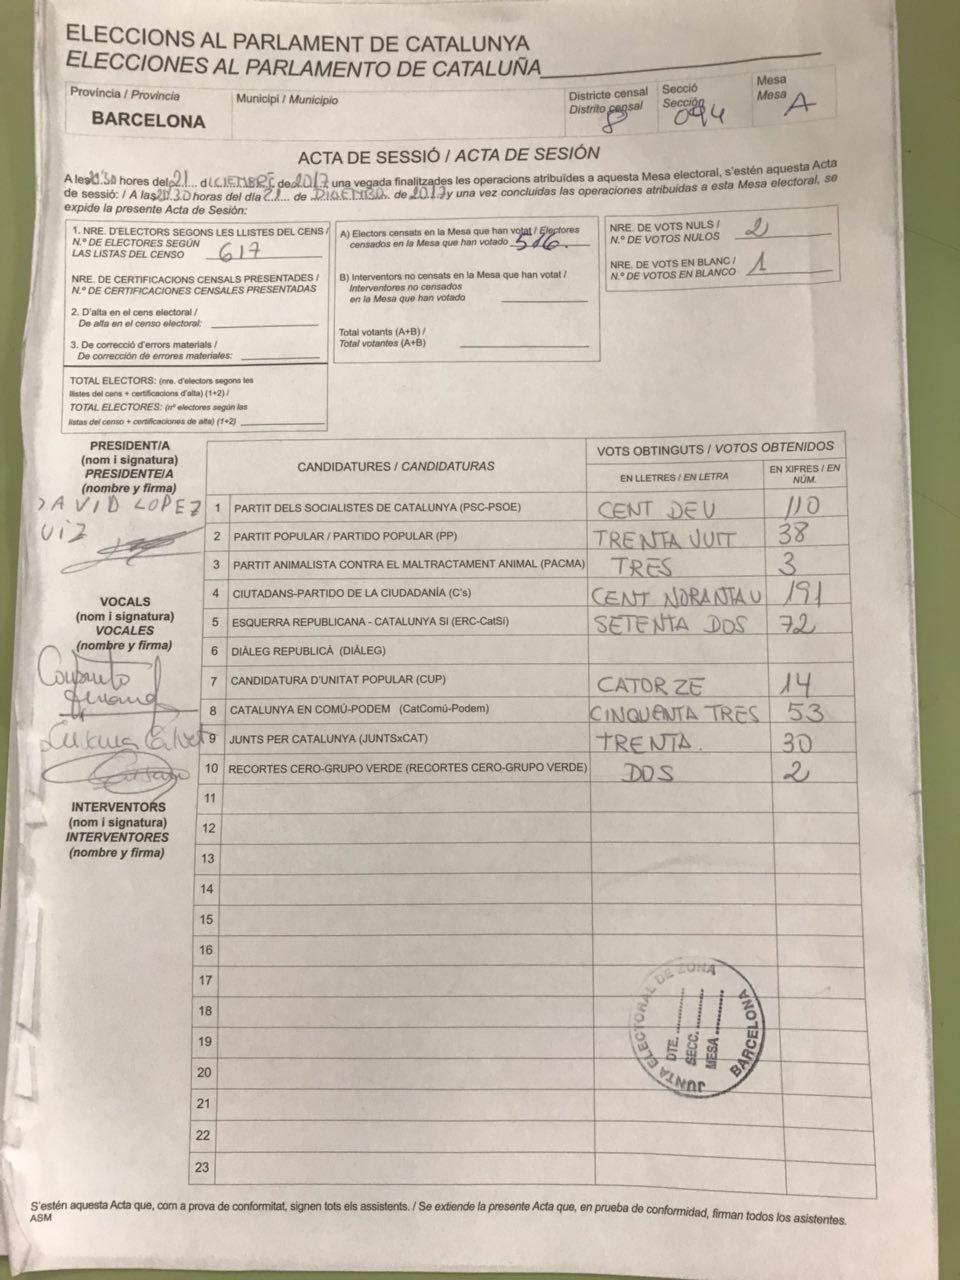 ELECCIONS AL PARLAMENT DE CATALUNYA
ELECCIONES AL PARLAMENTO DE CATALUÑA
Província / Provincia
BARCELONA
Municipi / Municipio
Districte censal
Distrito censal
8
Secció
Sección
094
Mesa
Mesa
A
ACTA DE SESSIÓ / ACTA DE SESIÓN
A les hores del 21 ... DICIEMBRE de 2017, una vegada finalitzades les operacions atribuïdes a aquesta Mesa electoral, s'estén aquesta Acta
de sessió: / A las 20.30 horas del día 21 ... de DICIEMBR. de 2017 y una vez concluidas las operaciones atribuidas a esta Mesa electoral, se
expide la presente Acta de Sesión:
1. NRE. D'ELECTORS SEGONS LES LLISTES DEL CENS /
N.º DE ELECTORES SEGÚN
LAS LISTAS DEL CENSO 617
NRE. DE CERTIFICACIONS CENSALS PRESENTADES /
N.º DE CERTIFICACIONES CENSALES PRESENTADAS
2. D'alta en el cens electoral /
De alta en el censo electoral:
3. De correcció d'errors materials /
De corrección de errores materiales:
TOTAL ELECTORS: (nre. d'electors segons les
llistes del cens + certificacions d'alta) (1+2) /
TOTAL ELECTORES: (nº electores según las
listas del censo + certificaciones de alta) (1+2)
A) Electors censats en la Mesa que han votat / Electores
censados en la Mesa que han votado 516.
B) Interventors no censats en la Mesa que han votat /
Interventores no censados
en la Mesa que han votado
Total votants (A+B) /
Total votantes (A+B)
NRE. DE VOTS NULS /
N.º DE VOTOS NULOS 2
NRE. DE VOTS EN BLANC /
N.º DE VOTOS EN BLANCO 1
PRESIDENT/A
(nom i signatura)
PRESIDENTE/A
(nombre y firma)
DAVID LOPEZ
VOCALS
(nom i signatura)
VOCALES
(nombre y firma)
INTERVENTORS
(nom i signatura)
INTERVENTORES
(nombre y firma)
CANDIDATURES / CANDIDATURAS
VOTS OBTINGUTS / VOTOS OBTENIDOS
EN LLETRES / EN LETRA
EN XIFRES / EN
NÚM.
1 PARTIT DELS SOCIALISTES DE CATALUNYA (PSC-PSOE) CENT DEU 110
2 PARTIT POPULAR / PARTIDO POPULAR (PP) TRENTA VUIT 38
3 PARTIT ANIMALISTA CONTRA EL MALTRACTAMENT ANIMAL (PACMA) TRES 3
4 CIUTADANS-PARTIDO DE LA CIUDADANÍA (C's) CENT NORANTA U 191
5 ESQUERRA REPUBLICANA - CATALUNYA SÍ (ERC-CatSí) SETENTA DOS 72
6 DIÀLEG REPUBLICÀ (DIÀLEG)
7 CANDIDATURA D'UNITAT POPULAR (CUP) CATORZE 14
8 CATALUNYA EN COMÚ-PODEM (CatComú-Podem) CINQUENTA TRES 53
9 JUNTS PER CATALUNYA (JUNTSxCAT) TRENTA. 30
10 RECORTES CERO-GRUPO VERDE (RECORTES CERO-GRUPO VERDE) DOS 2
11
12
13
14
15
16
17
18
19
20
21
22
23
JUNTA ELECTORAL DE ZONA
DTE. ............
SECC. ............
MESA ............
BARCELONA
S'estén aquesta Acta que, com a prova de conformitat, signen tots els assistents. / Se extiende la presente Acta que, en prueba de conformidad, firman todos los asistentes.
ASM